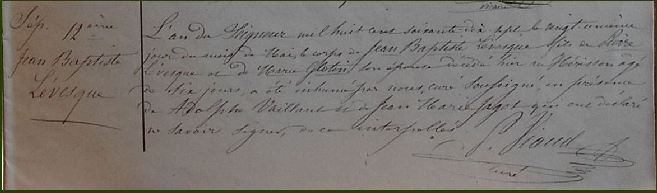 Sép. 12ème
Jean Baptiste
Lévesque
L'an du Seigneur mil huit cent soixante dix sept, le vingt unième
jour du mois de Mai, le corps de Jean Baptiste Levesque fils de Pierre
Levesque et de Marie Gloton son épouse décédé hier au Hérisson agé
de dix jours, a été inhumé par nous, curé soussigné, en présence
de Adolphe Vaillant et de Jean Marie Jagot qui ont déclaré
ne savoir signer, de ce interpellés.
P. Viaud
curé